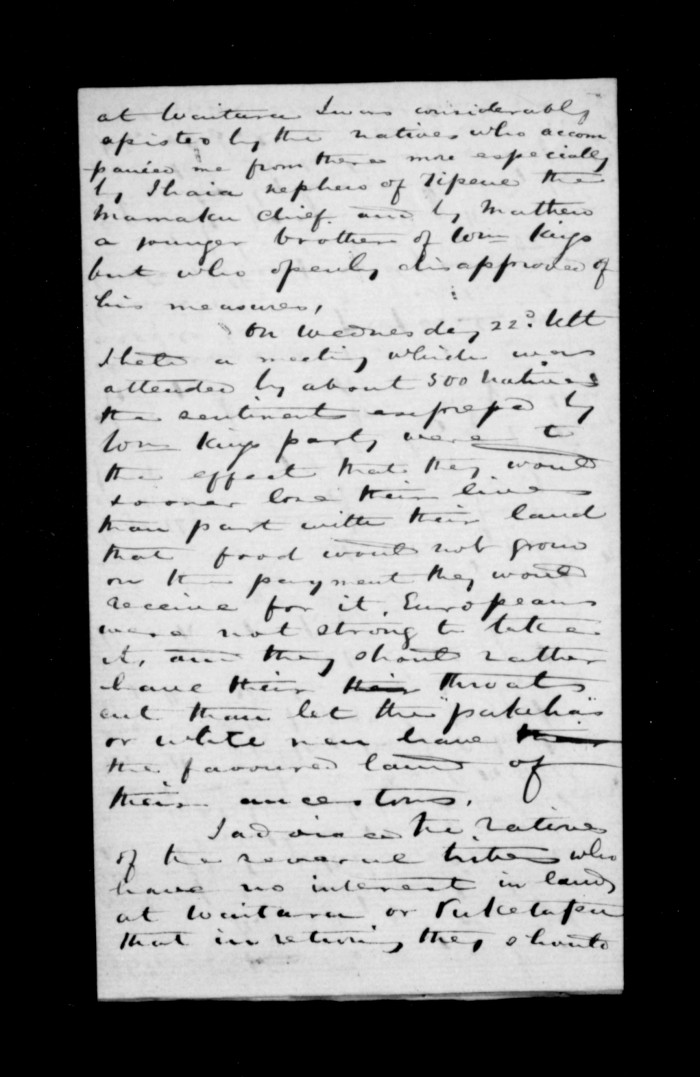 at Waitara I was considerably
assisted by the natives who accom
panied me from there more especially
by Ihaia nephew of Tipene the
Mamaku Chief and by Mathew
a younger brother of Wm Kings
but who openly disapproved of
his measures,
On Wednesday 22d. Ult
I held a meeting which was
attended by about 500 natives
the sentiments expressed by
Wm Kings party were to
the effect that they would
sooner lose their lives
than part with their land
that food would not grow
on the payment they would
receive for it, Europeans
were not strong to take
it, and they should rather
have their their throats
cut than let the "pakeha"s
or white men have their
the favoured land of
their ancestors.
I advised the natives
of the several tribes who
have no interest in land
at Waitara or Puketapu
that in retiring they should